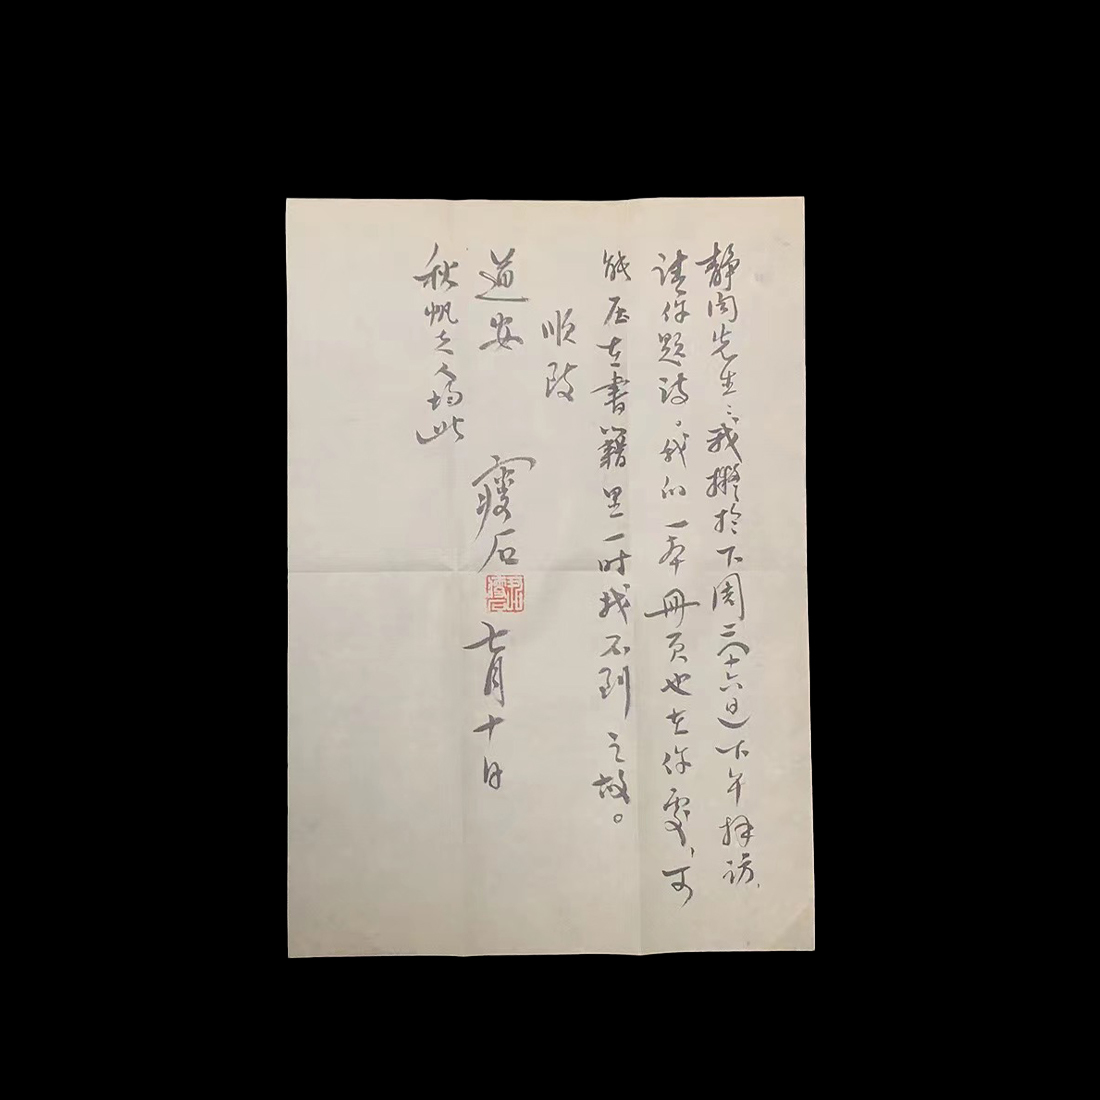 静闻先生:我擬於下周二(十六日)下午拜访,
请你题诗,我的一本冊页也在你處,可
能压在書籍里一时找不到之故。
顺致
道安
瘦石
尹瘦石
七月十日
秋帆夫人均此